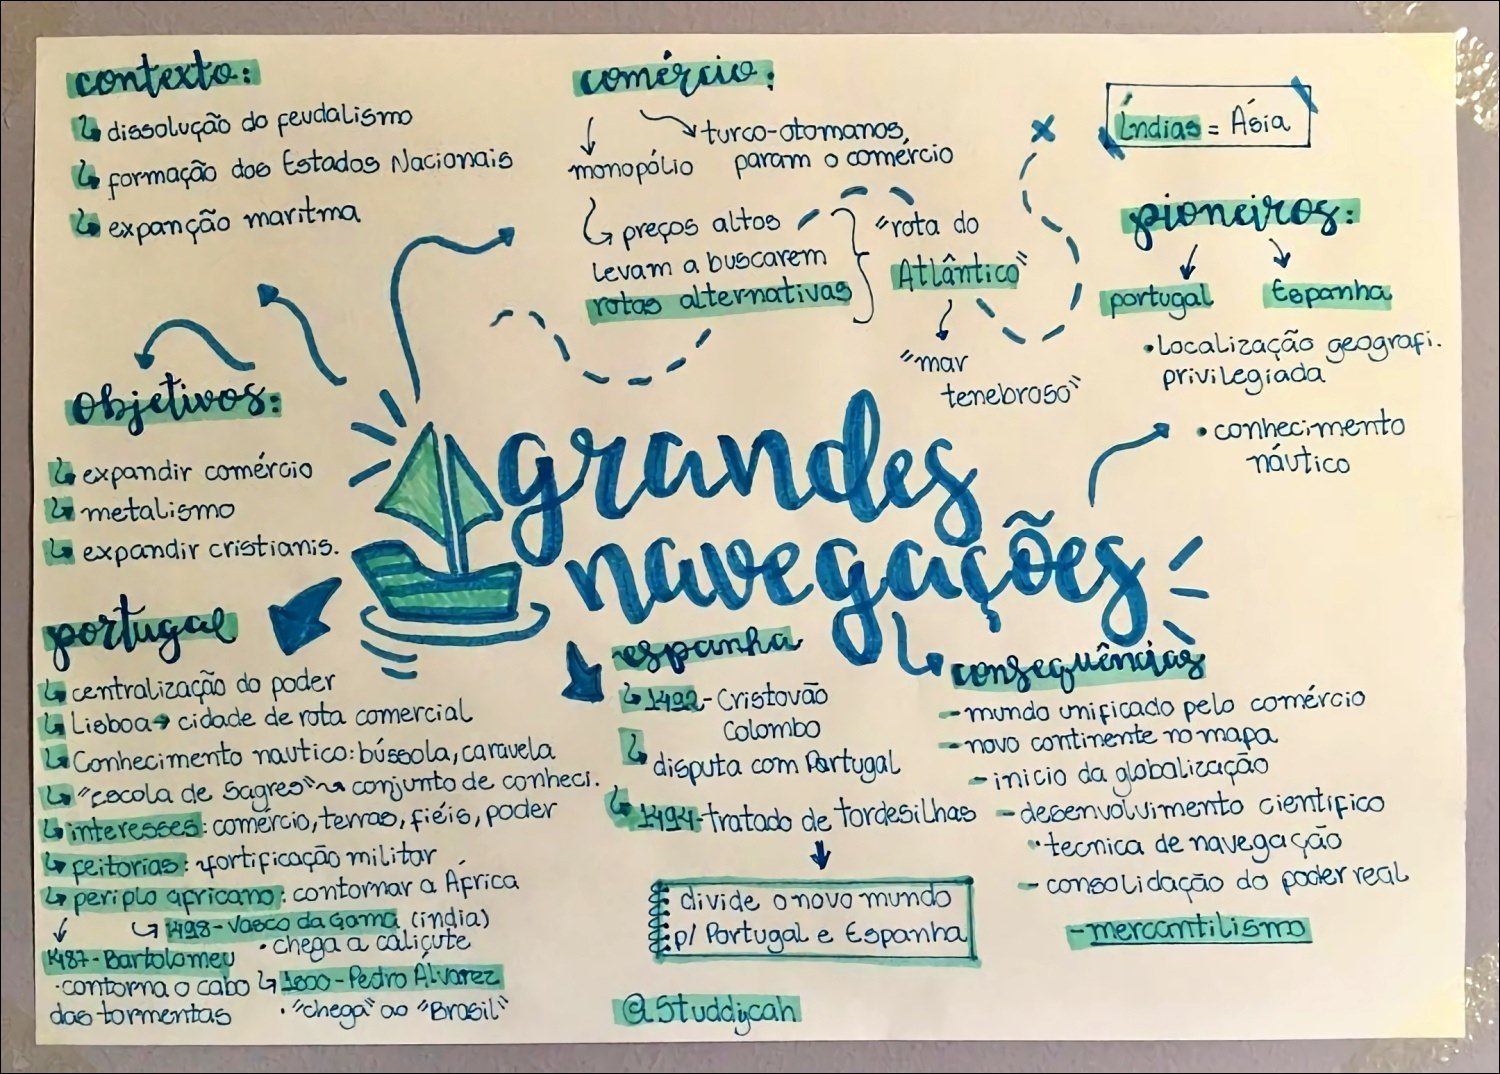 contexto:
dissolução do feudalismo
formação dos Estados Nacionais
expanção maritma
comércio:
monopólio
turco-otomanos,
param o comércio
preços altos
levam a buscarem
rotas alternativas
"rota do
Atlântico"
"mar
tenebroso"
Índias = Ásia
pioneiros:
portugal
Espanha
• Localização geografi.
privilegiada
• conhecimento
náutico
objetivos:
expandir comércio
metalismo
expandir cristianis.
grandes
navegações
portugal
centralização do poder
Lisboa → cidade de rota comercial
Conhecimento nautico: bússola, caravela
"escola de Sagres" → conjunto de conheci.
interesses: comércio, terras, fiéis, poder
feitorias: fortificação militar
periplo africano: contornar a África
1498 - Vasco da Gama (índia)
• chega a calicute
1487 - Bartolomeu
• contorna o cabo
das tormentas
1500 - Pedro Álvarez
• "chega" ao "Brasil"
espanha
1492 - Cristovão
Colombo
disputa com Portugal
1494 - tratado de Tordesilhas
divide o novo mundo
p/ Portugal e Espanha
@Studdycah
consequências
- mundo unificado pelo comércio
- novo continente no mapa
- inicio da globalização
- desenvolvimento científico
• tecnica de navegação
- consolidação do poder real
- mercantilismo